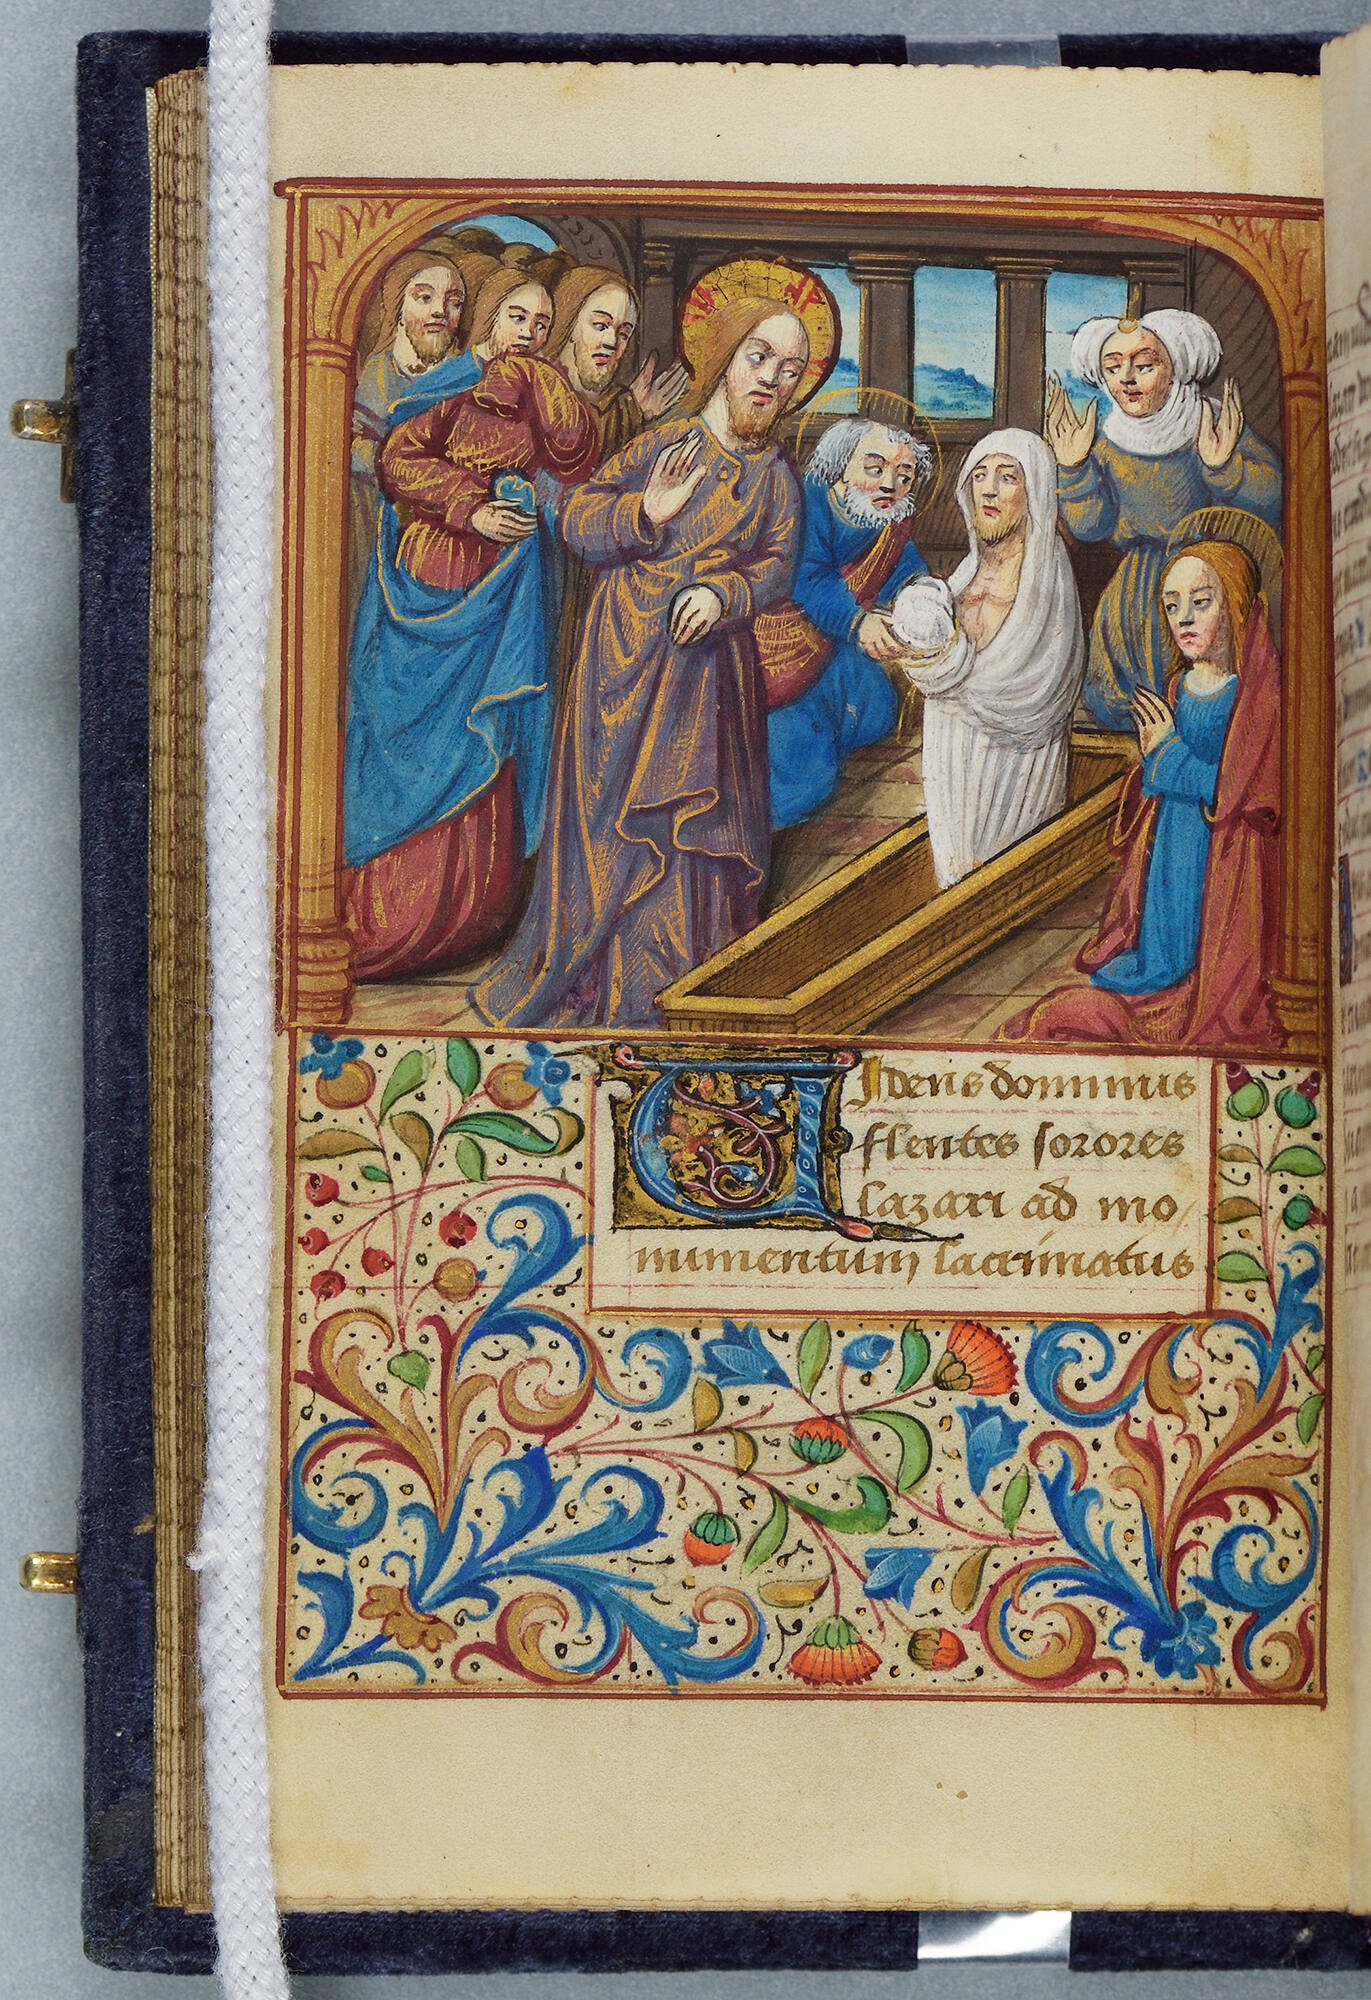 Videns dominus
flentes sorores
lazari ad mo
numentum lacrimatus